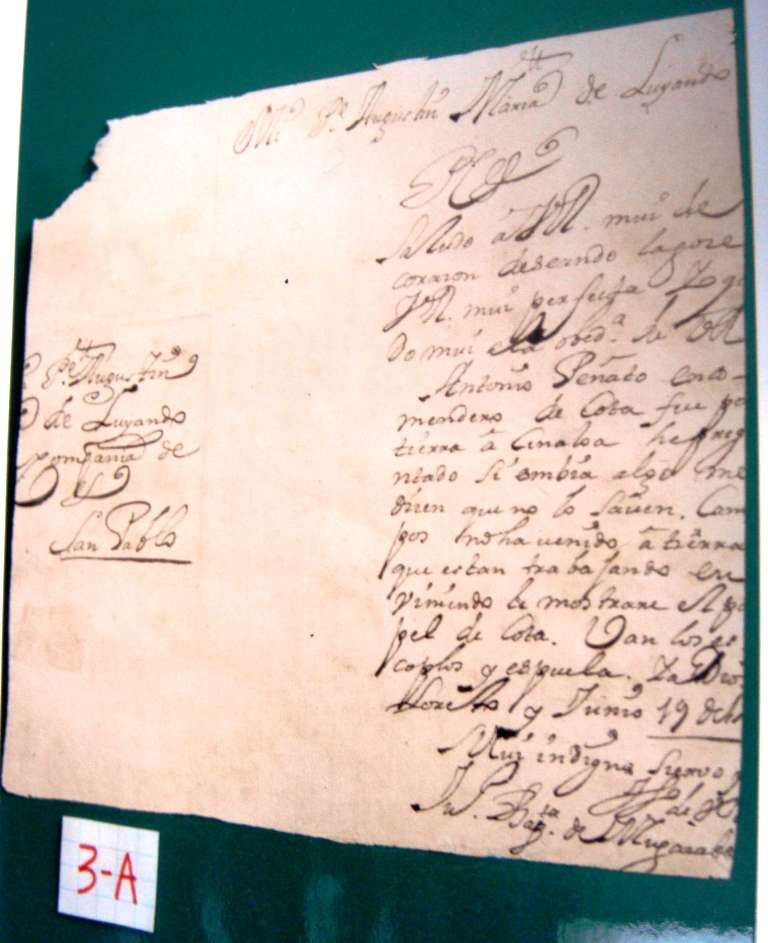 Mi Pe. Augustin Maria de Luyando
Saludo à VR. mui de
corazon deseando la goze
VR. mui perfecta
do mui a la obeda. de VR
Antonio Peñato enco-
mendero de Cota fue po
tierra à Cinaloa he preg
ntado si embia algo me
dizen que no lo saven. Cam
pos no ha venido à tierra
que estan trabajando en
viniendo le mostrare el pa
pel de Cota. Van los es
coplos y espuela. Ya Dios
Loreto y Junio 19 de
Mui indigno siervo
de VR
Ju. Bapta. de Mugazabal
Pe. Augustin
de Luyando
Compañia de
San Pablo
3-A